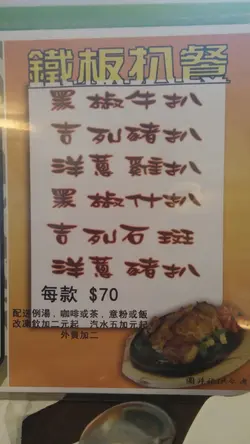 鐵板扒餐
黑椒牛扒
吉列豬扒
洋蔥雞扒
黑椒什扒
吉列石斑
洋蔥豬扒
每款 $70
配送例湯，咖啡或茶，意粉或飯
改凍飲加二元起 汽水五加元起
外賣加二
圖片